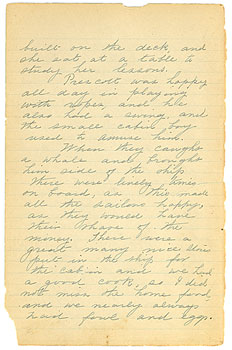 built on the deck, and
she sat, at a table to
study her lessons.
Prescott was happy
all day in playing
with ropes, and he
also had a swing, and
the small cabin boy
used to amuse him.
When they caught
a whale and brought
him side of the ship
there were lively times
on board, as this made
all the sailors happy,
as they would have
their share of the
money. There were a
great many nice things
put in the ship for
the cabin and we had
a good cook, so I did
not miss the home food,
and we nearly always
had fowl and eggs.